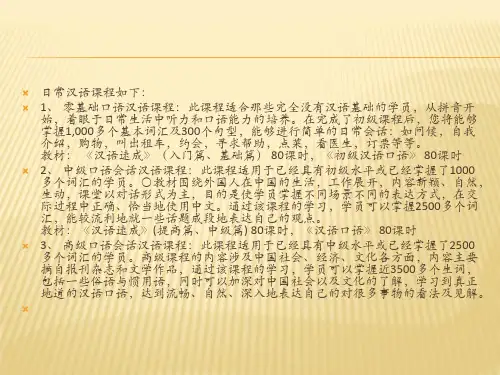 日常汉语课程如下：
1、 零基础口语汉语课程：此课程适合那些完全没有汉语基础的学员，从拼音开
始，着眼于日常生活中听力和口语能力的培养。在完成了初级课程后，您将能够
掌握1,000多个基本词汇及300个句型，能够进行简单的日常会话：如问候，自我
介绍，购物，叫出租车，约会，寻求帮助，点菜，看医生，订票等等。
教材： 《汉语速成》（入门篇、基础篇） 80课时，《初级汉语口语》 80课时
2、 中级口语会话汉语课程：此课程适用于已经具有初级水平或已经掌握了1000
多个词汇的学员。〇教材围绕外国人在中国的生活，工作展开，内容新颖、自然，
生动，课堂以对话形式为主，目的是使学员掌握不同场景不同的表达方式，在交
际过程中正确、恰当地使用中文。通过该课程的学习，学员可以掌握2500多个词
汇，能较流利地就一些话题成段地表达自己的观点。
教材： 《汉语速成》(提高篇、中级篇) 80课时，《汉语口语》 80课时
3、 高级口语会话汉语课程：此课程适用于已经具有中级水平或已经掌握了2500
多个词汇的学员。高级课程的内容涉及中国社会、经济、文化各方面，内容主要
摘自报刊杂志和文学作品，通过该课程的学习，学员可以掌握近3500多个生词，
包括一些俗语与惯用语，同时可以加深对中国社会以及文化的了解，学习到真正
地道的汉语口语，达到流畅、自然、深入地表达自己的对很多事物的看法及见解。